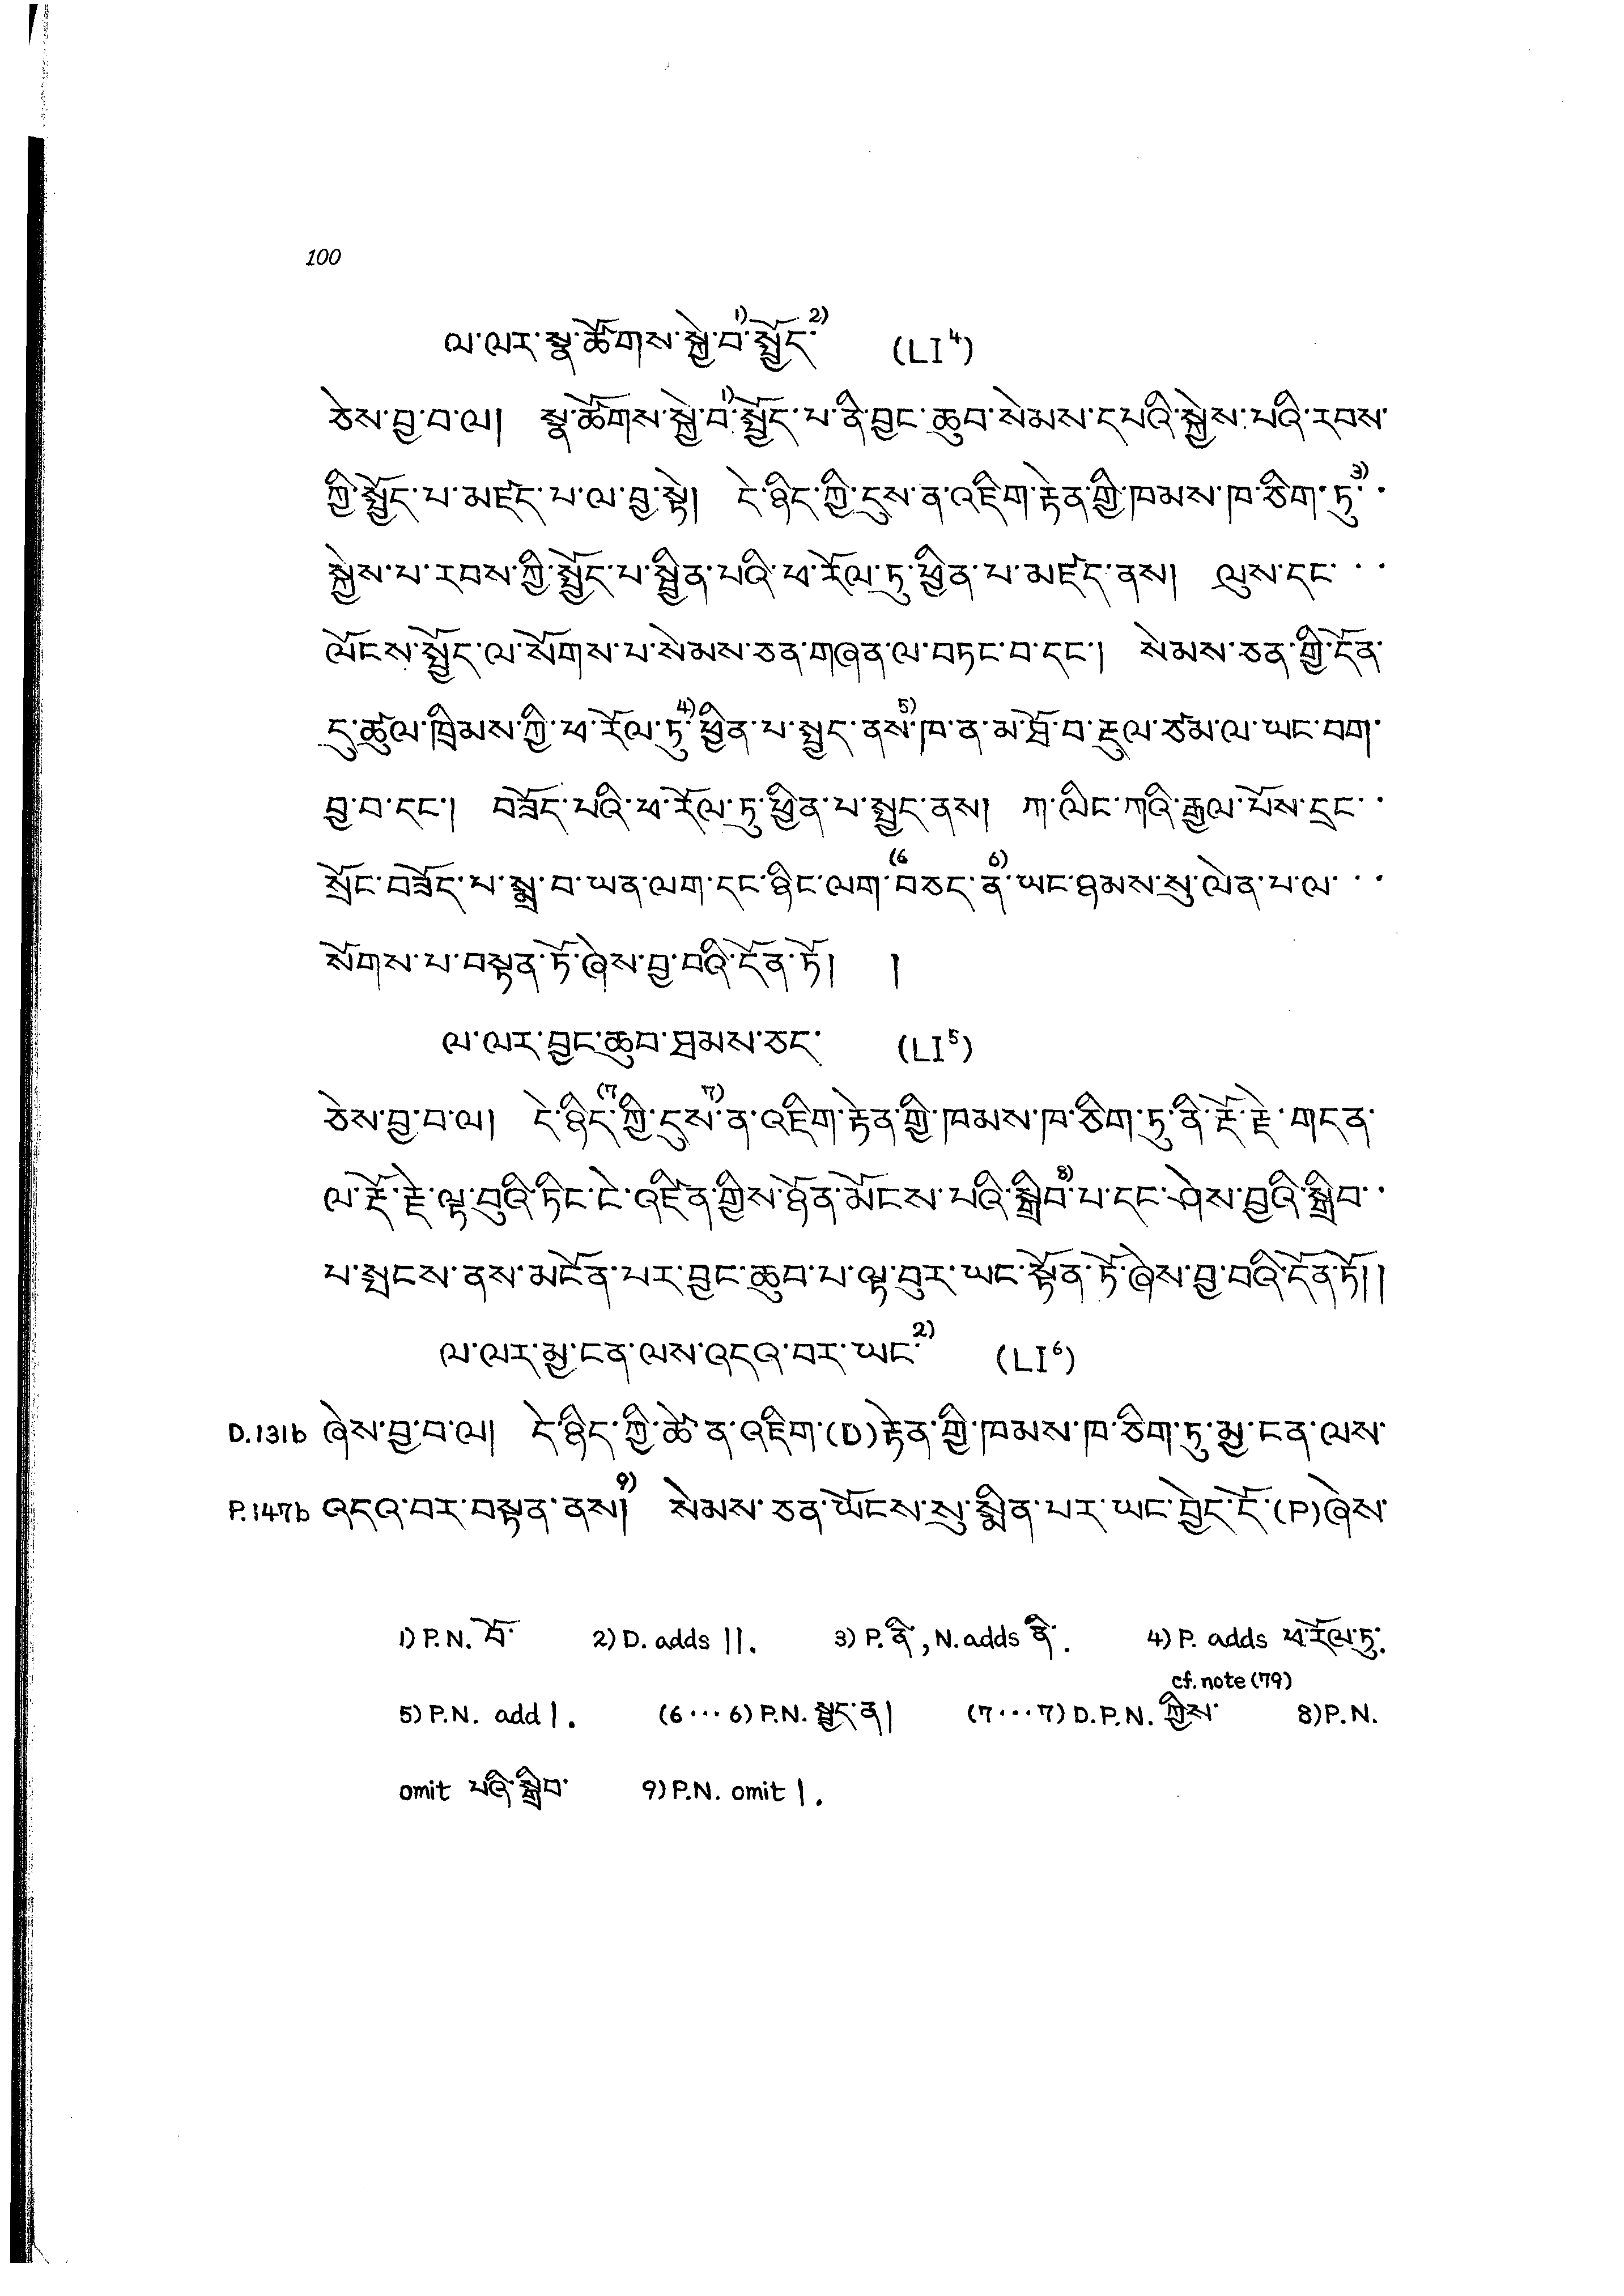 100
ལ་ལར་སྣ་ཚོགས་སྐྱེ་བ་1)སྤྱོད་2) (LI4)
ཅེས་བྱ་བ་ལ། སྣ་ཚོགས་སྐྱེ་བ་1)སྤྱོད་པ་ནི་བྱང་ཆུབ་སེམས་དཔའི་སྐྱེས་པའི་རབས་
ཀྱི་སྤྱོད་པ་མཛད་པ་ལ་བྱ་སྟེ། དེ་ཉིད་ཀྱི་དུས་ན་འཇིག་རྟེན་གྱི་ཁམས་ཁ་ཅིག་ཏུ་3)་
སྐྱེས་པ་རབས་ཀྱི་སྤྱོད་པ་སྦྱིན་པའི་ཕ་རོལ་ཏུ་ཕྱིན་པ་མཛད་ནས། ལུས་དང་་་
ལོངས་སྤྱོད་ལ་སོགས་པ་སེམས་ཅན་གཞན་ལ་བཏང་བ་དང་། སེམས་ཅན་གྱི་དོན་
དུ་ཚུལ་ཁྲིམས་ཀྱི་ཕ་རོལ་ཏུ་4)ཕྱིན་པ་སྤྱད་ནས་5)ཁ་ན་མ་ཐོ་བ་རྡུལ་ཙམ་ལ་ཡང་བག་
བྱ་བ་དང་། བཟོད་པའི་ཕ་རོལ་ཏུ་ཕྱིན་པ་སྤྱད་ནས། ཀ་ལིང་ཀའི་རྒྱལ་པོས་དྲང་་
སྲོང་བཟོད་པ་སྨྲ་བ་ཡན་ལག་དང་ཉིང་ལག་(6བཅད་ན་6)ཡང་ཉམས་སུ་ལེན་པ་ལ་་་
སོགས་པ་བསྟན་ཏོ་ཞེས་བྱ་བའི་དོན་ཏོ། །
ལ་ལར་བྱང་ཆུབ་ཐམས་ཅད་ (LI5)
ཅེས་བྱ་བ་ལ། དེ་ཉིད་(7ཀྱི་དུས་7)ན་འཇིག་རྟེན་གྱི་ཁམས་ཁ་ཅིག་ཏུ་ནི་རྡོ་རྗེ་གདན་
ལ་རྡོ་རྗེ་ལྟ་བུའི་ཏིང་ངེ་འཛིན་གྱིས་ཉོན་མོངས་པའི་སྒྲིབ་8)པ་དང་ཤེས་བྱའི་སྒྲིབ་་
པ་སྤངས་ནས་མངོན་པར་བྱང་ཆུབ་པ་ལྟ་བུར་ཡང་སྟོན་ཏོ་ཞེས་བྱ་བའི་དོན་ཏོ།།
ལ་ལར་མྱ་ངན་ལས་འདའ་བར་ཡང་2) (LI6)
D.131b ཞེས་བྱ་བ་ལ། དེ་ཉིད་ཀྱི་ཚེ་ན་འཇིག་(D)རྟེན་གྱི་ཁམས་ཁ་ཅིག་ཏུ་མྱ་ངན་ལས་
P.147b འདའ་བར་བསྟན་ནས།9) སེམས་ཅན་ཡོངས་སུ་སྨིན་པར་ཡང་བྱེད་དོ་(P)ཞེས་
1) P.N. བོ་ 2) D. adds ||. 3) P. ནི་, N. adds ནི་. 4) P. adds ཕ་རོལ་ཏུ་.
cf. note (79)
5) P.N. add |. (6...6) P.N. སྤྱད་ན། (7...7) D.P.N. ཀྱིས་ 8) P.N.
omit པའི་སྒྲིབ་ 9) P.N. omit |.